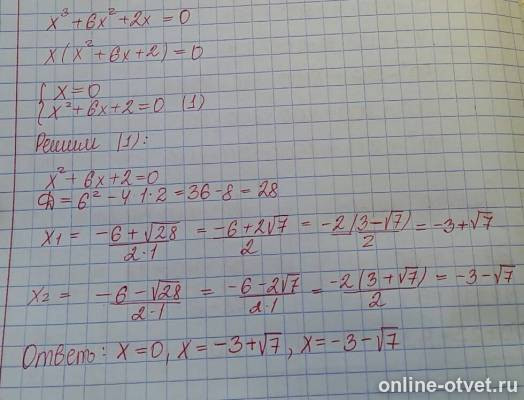 x³ + 6x² + 2x = 0
x(x² + 6x + 2) = 0
{ x = 0
{ x² + 6x + 2 = 0 (1)
Решим (1):
x² + 6x + 2 = 0
D = 6² - 4·1·2 = 36 - 8 = 28
x₁ = (-6 + √28)/(2·1) = (-6 + 2√7)/2 = (-2(3 - √7))/2 = -3 + √7
x₂ = (-6 - √28)/(2·1) = (-6 - 2√7)/(2·1) = (-2(3 + √7))/2 = -3 - √7
Ответ: x = 0, x = -3 + √7, x = -3 - √7
online-otvet.ru